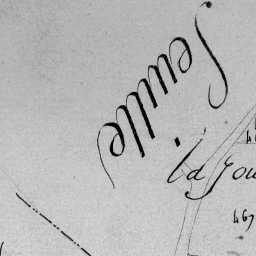 feuille
la Jou
467